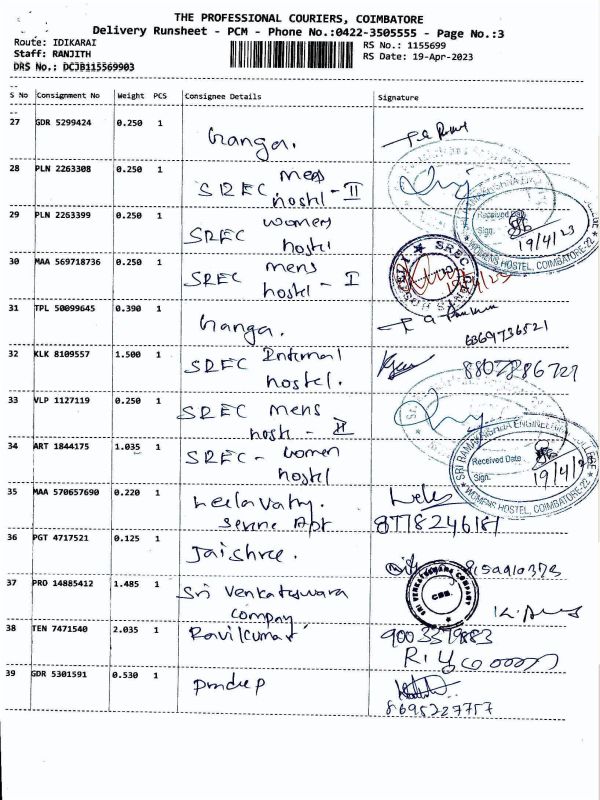 THE PROFESSIONAL COURIERS, COIMBATORE
Delivery Runsheet - PCM - Phone No.:0422-3505555 - Page No.:3
Route: IDIKARAI
Staff: RANJITH
DRS No.: DCJB115569903
RS No.: 1155699
RS Date: 19-Apr-2023
S No Consignment No Weight PCS Consignee Details Signature
27 GDR 5299424 0.250 1 Ganga.
28 PLN 2263308 0.250 1 SREC mens
hostel - II
29 PLN 2263399 0.250 1 SREC womens
hostel
Received Date
Sign.
19/4/23
WOMENS HOSTEL, COIMBATORE-22
30 MAA 569718736 0.250 1 SREC mens
hostel - I
SREC
31 TPL 50099645 0.390 1 Ganga.
6369736521
32 KLK 8109557 1.500 1 SREC Internal
hostel. 8807886727
33 VLP 1127119 0.250 1 SREC mens
hostel - II
34 ART 1844175 1.035 1 SREC - women
hostel
SRI RAMAKRISHNA ENGINEERING COLLEGE
Received Date
Sign.
19/4/23
WOMENS HOSTEL, COIMBATORE-22
35 MAA 570657690 0.220 1 Leelavathy.
Serene Apt 8778246181
36 PGT 4717521 0.125 1 Jaishree.
37 PRO 14885412 1.485 1 Sri Venkateswara
company
SRI VENKATESWARA COMPANY
CBE.
38 TEN 7471540 2.035 1 Ravikumar 9003379883
39 GDR 5301591 0.530 1 Pradeep
8695227757